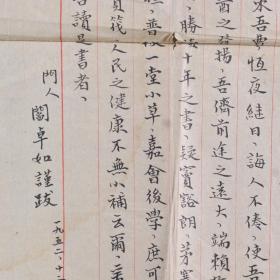 來吾曹恆夜繼日、誨人不倦、使吾
酋之發揚、吾儕前途之遠大、端賴
、勝讀十年之書、疑竇豁朗、茅塞
曉、普收一堂小草、嘉會後學、庶可
負笈、人民之健康不無小補云爾、
讀是書者、
門人 閻卓如謹跋
一九五二、十